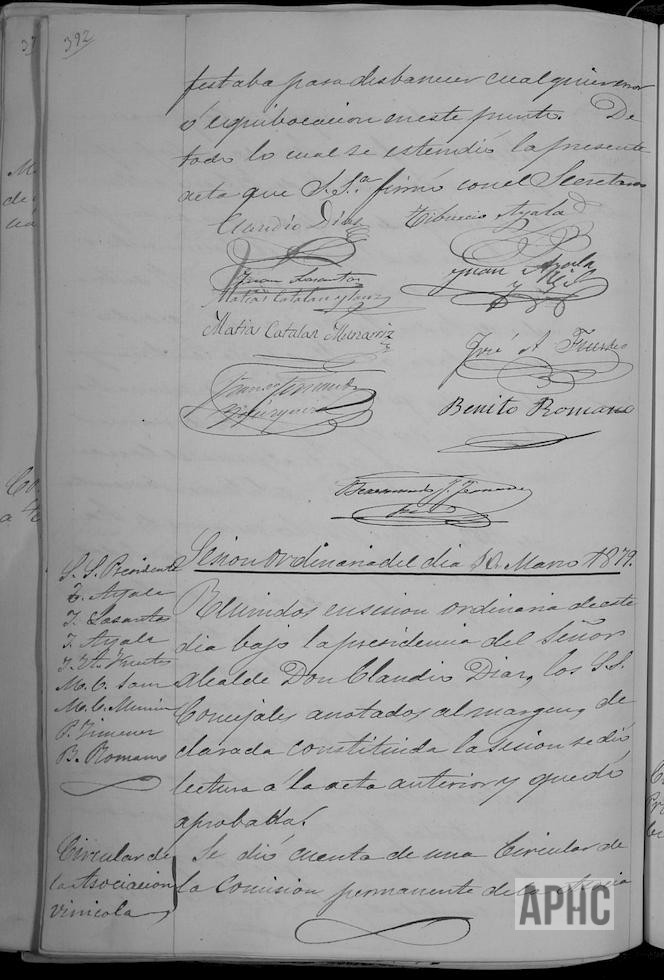 392
festaba para desbanecer cualquier error
ó equibocacion en este punto. De
todo lo cual se estendió la presente
acta que S.S.ª firmó con el Secretario
Claudio Dias
Tiburcio Ayala
Juan Lasantas
Juan Ayala
Matias Catalan y Sanz
Matias Catalan Munarriz
José A Fuentes
Benito Romano
Sesion ordinaria del dia Marzo 1879.
S. S. Presidente
T. Ayala
J. Lasantas
J. Ayala
J. A. Fuentes
M. C. Sanz
M. C. Munarriz
P. Jimenez
B. Romano
Reunidos en sesion ordinaria de este
dia bajo la presidencia del Señor
Alcalde Don Claudio Diaz, los S.S.
Concejales anotados al margen, de
clarada constituida la sesion se dió
lectura á la acta anterior y quedó
aprobada.
Circular de
la Asociacion
vinicola
Se dió cuenta de una Circular de
la Comision permanente de la
APHC